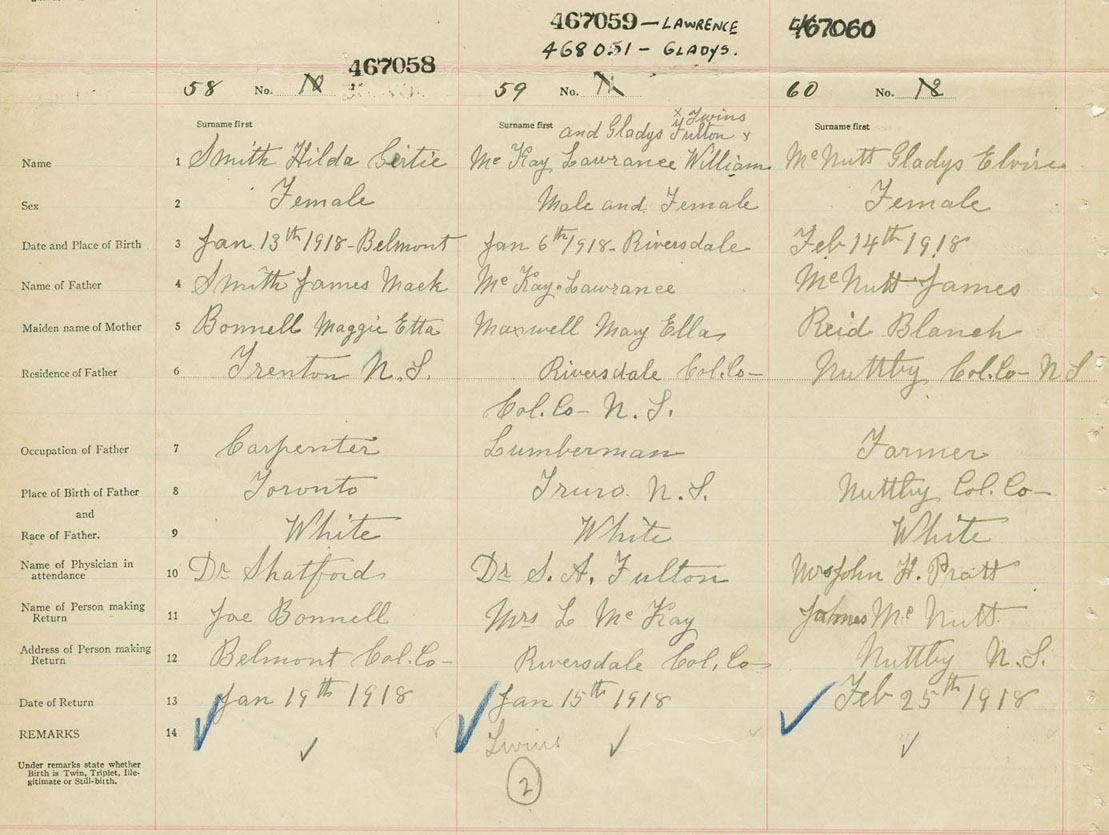 467059 – LAWRENCE
468051 – GLADYS.
467060
467058
58 No. 59 No. 60 No.
Surname first Surname first and Gladys Fulton x Twins x Surname first
Name 1 Smith Hilda Gertie Mc Kay Lawrance William McNutt Gladys Elvire
Sex 2 Female Male and Female Female
Date and Place of Birth 3 Jan 13th 1918 - Belmont Jan 6th 1918 - Riversdale Feb 14th 1918
Name of Father 4 Smith James Mack Mc Kay Lawrance McNutt James
Maiden name of Mother 5 Bonnell Maggie Etta Maxwell Mary Ella Reid Blanch
Residence of Father 6 Trenton N.S. Riversdale Col. Co – Nuttby Col. Co – N S
Col. Co – N. S.
Occupation of Father 7 Carpenter Lumberman Farmer
Place of Birth of Father 8 Toronto Truro N. S. Nuttby Col. Co –
and
Race of Father. 9 White White White
Name of Physician in attendance 10 Dr Shatford Dr S. A. Fulton Mrs John H. Pratt
Name of Person making Return 11 Joe Bonnell Mrs L Mc Kay James Mc Nutt
Address of Person making Return 12 Belmont Col. Co – Riversdale Col. Co – Nuttby N. S.
Date of Return 13 Jan 19th 1918 Jan 15th 1918 Feb 25th 1918
REMARKS 14 Twins
Under remarks state whether
Birth is Twin, Triplet, Ille-
gitimate or Still-birth.
2